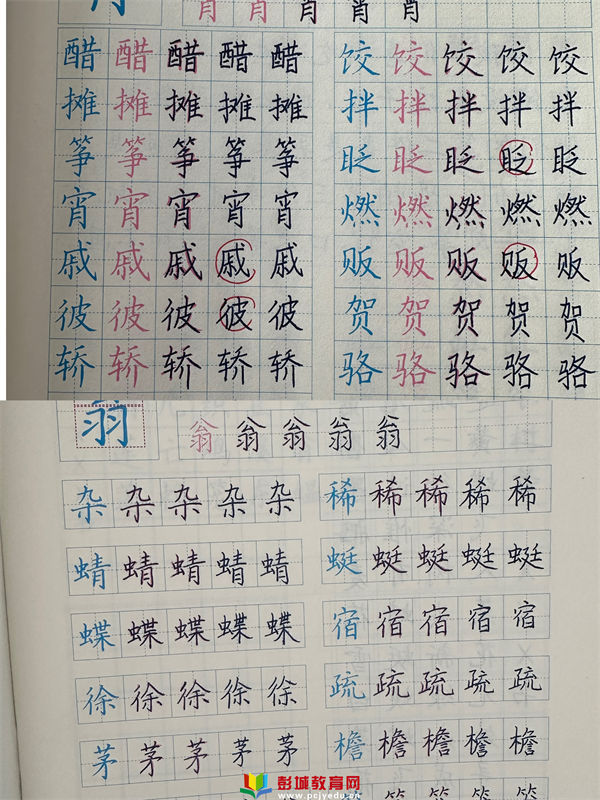 肖肖肖肖
醋醋醋醋醋 饺饺饺饺饺
摊摊摊摊摊 拌拌拌拌拌
筝筝筝筝筝 眨眨眨眨眨
宵宵宵宵宵 燃燃燃燃燃
戚戚戚戚戚 贩贩贩贩贩
彼彼彼彼彼 贺贺贺贺贺
轿轿轿轿轿 骆骆骆骆骆
翁 翁翁翁翁翁
杂杂杂杂杂 稀稀稀稀稀
蜻蜻蜻蜻蜻 蜓蜓蜓蜓蜓
蝶蝶蝶蝶蝶 宿宿宿宿宿
徐徐徐徐徐 疏疏疏疏疏
茅茅茅茅茅 檐檐檐檐檐
彭城教育网
www.pcjyedu.cn